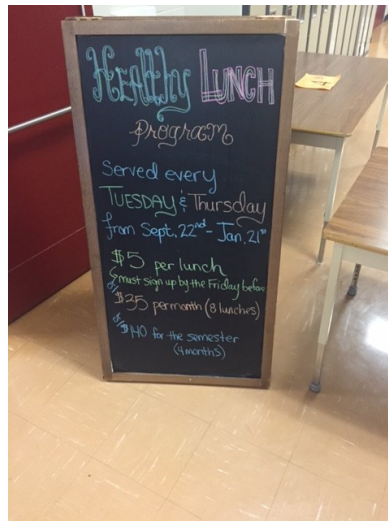 Healthy Lunch
Program
Served every
Tuesday & Thursday
from Sept. 22nd - Jan. 21st
$5 per lunch
↳must sign up by the Friday before
or $35 per month (8 lunches)
or $140 for the semester
(4 months)